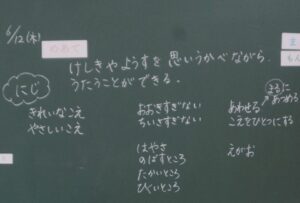 6/12(木)
めあて
けしきやようすを思いうかべながら、
うたうことができる。
にじ
きれいなこえ
やさしいこえ
おおきすぎない
ちいさすぎない
はやさ
のばすところ
たかいところ
ひくいところ
まるに
あつめる
あわせる
こえをひとつにする
えがお